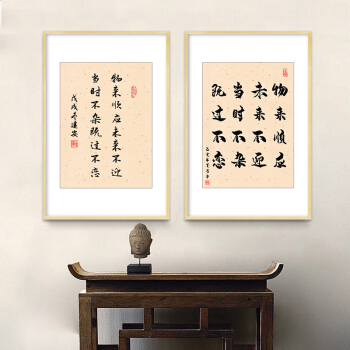 物来顺应未来不迎
当时不杂既过不恋
物来顺应
未来不迎
当时不杂
既过不恋